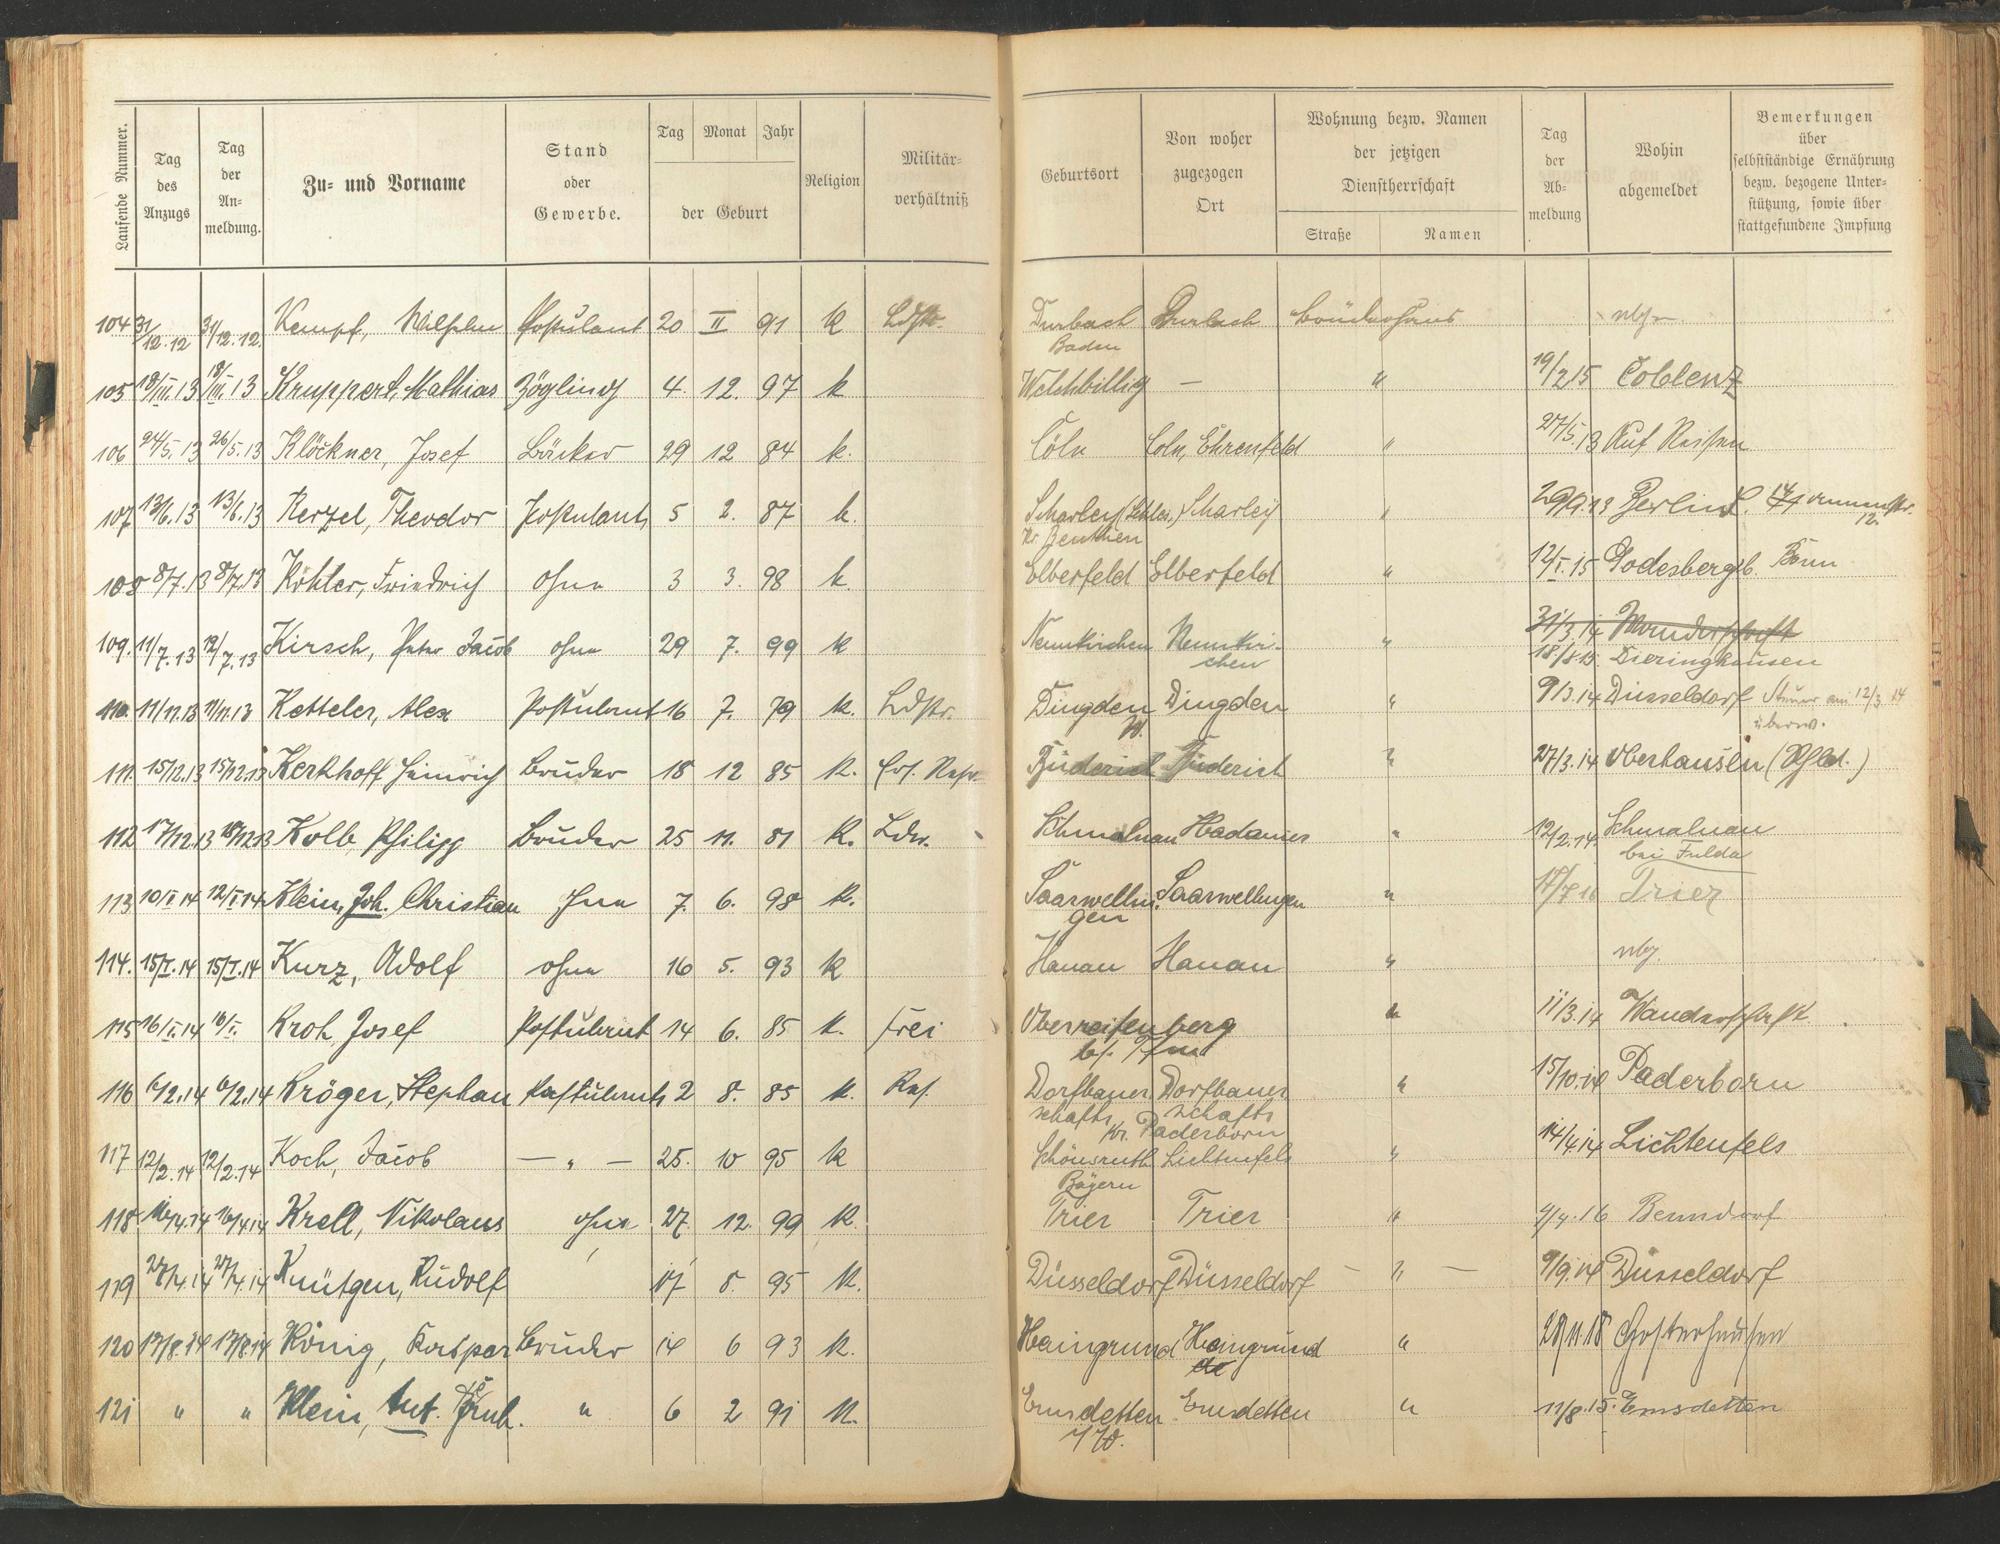 Laufende Nummer. | Tag des Anzugs | Tag der Anmeldung. | Zu- und Vorname | Stand oder Gewerbe. | Tag | Monat | Jahr | der Geburt | Religion | Militärverhältniß | Geburtsort | Von woher zugezogen Ort | Wohnung bezw. Namen der jetzigen Dienstherrschaft | Straße | Namen | Tag der Abmeldung | Wohin abgemeldet | Bemerkungen über selbstständige Ernährung bezw. bezogene Unterstützung, sowie über stattgefundene Impfung
104 31/12.12 31/12.12. Kempf, Wilhelm Postulant 20 II 91 K Ldst. Durbach Baden Durbach Brüderhaus
105 18/III.13 18/III.13 Kruppert, Mathias Zögling 4. 12. 97 k Welchbillig — " 19/2 15 Coblenz
106 24/5.13 26/5.13 Klöckner, Josef Bäcker 29 12 84 k. Cöln Coln, Ehrenfeld " 27/5.13 Auf Reisen
107 13/6.13 13/6.13 Kerzel, Theodor Postulant 5 2. 87 k. Scharley (Schles.) Kr. Beuthen Scharley " 29/9.13 Berlin
108 8/7.13 8/7.13 Köhler, Friedrich ohne 3 3. 98 k. Elberfeld Elberfeld " 12/I.15 Godesberg b. Bonn
109. 11/7.13 12/7.13 Kirsch, Peter Jacob ohne 29 7. 99 k Neunkirchen Neunkirchen " 31/3.14 Wanderschaft 18/8 15 Dieringhausen
110. 11/11.13 11/11.13 Ketteler, Alex Postulant 16 7. 79 k. Ldstr. Dingden W. Dingden " 9/3.14 Düsseldorf Steuer am 12/3 14 überw.
111. 15/12.13 15/12.13 Kerkhoff Heinrich Bruder 18 12 85 k. Ers. Res. Büderich Büderich " 27/3.14 Oberhausen (Rhld.)
112 17/12.13 18/12 13 Kolb, Philipp Bruder 25 11. 81 K. Ldw. Schmalnau Hadamar " 12/2.14. Schmalnau bei Fulda
113 10/I 14 12/I 14 Klein, Joh. Christian ohne 7. 6. 98 K. Saarwellingen Saarwellingen " 17/7 16 Trier
114. 15/I.14 15/I.14 Kurz, Adolf ohne 16 5. 93 K Hanau Hanau "
115 16/I.14 16/I. Kroh, Josef Postulant 14 6. 85 K. frei Oberreifenberg " 11/3.14 Wanderschaft
116 6/2.14 6/2.14 Kröger, Stephan Postulant 2 8. 85 k. Res. Dorfbauerschafts Kr. Paderborn Dorfbauerschafts " 15/10.14 Paderborn
117 12/2.14 12/2.14 Koch, Jacob — " — 25. 10 95 K Bayern Lichtenfels " 14/4.14 Lichtenfels
118 16/4.14 16/4 14 Krell, Nikolaus ohne 27. 12. 99 K. Trier Trier " 4/4.16 Benndorf
119 27/4.14 27/4.14 Knütgen, Rudolf 17 8. 95 K. Düsseldorf Düsseldorf — " — 9/9.14 Düsseldorf
120 17/8.14 17/8.14 König, Kaspar Bruder 14 6 93 K. Haingrund Haingrund " 28/11.18
121 " " Klein, Ant. " 6 2 91 K. Emsdetten i/W. Emsdetten " 11/8.15. Emsdetten